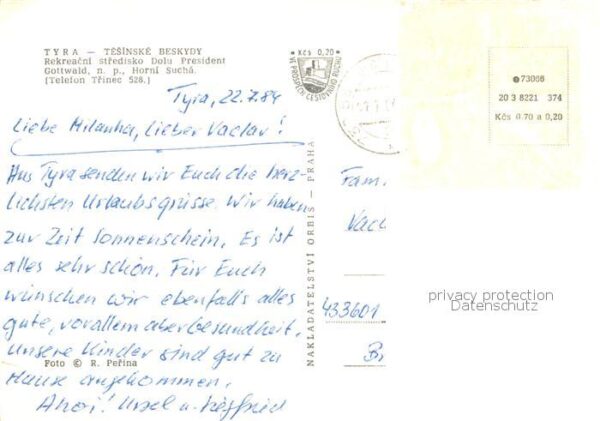 TYRA — TĚŠÍNSKÉ BESKYDY
Rekreační středisko Dolu President
Gottwald, n. p., Horní Suchá.
(Telefon Třinec 528.)
Kčs 0,20
VE PROSPĚCH CESTOVNÍHO RUCHU
73066
20 3 8221 374
Kčs 0.70 a 0,20
Tyra, 22.7.84
Liebe Milanka, Lieber Vaclav!
Aus Tyra senden wir Euch die herz-
lichsten Urlaubsgrüsse. Wir haben
zur Zeit Sonnenschein. Es ist
alles sehr schön. Für Euch
wünschen wir ebenfalls alles
gute, vorallem aber Gesundheit.
Unsere Kinder sind gut zu
Hause angekommen.
Ahoi! Ursel u. Siegfried
Foto © R. Peřina
NAKLADATELSTVÍ ORBIS — PRAHA
Fam.
Vac
433601
B
privacy protection
Datenschutz